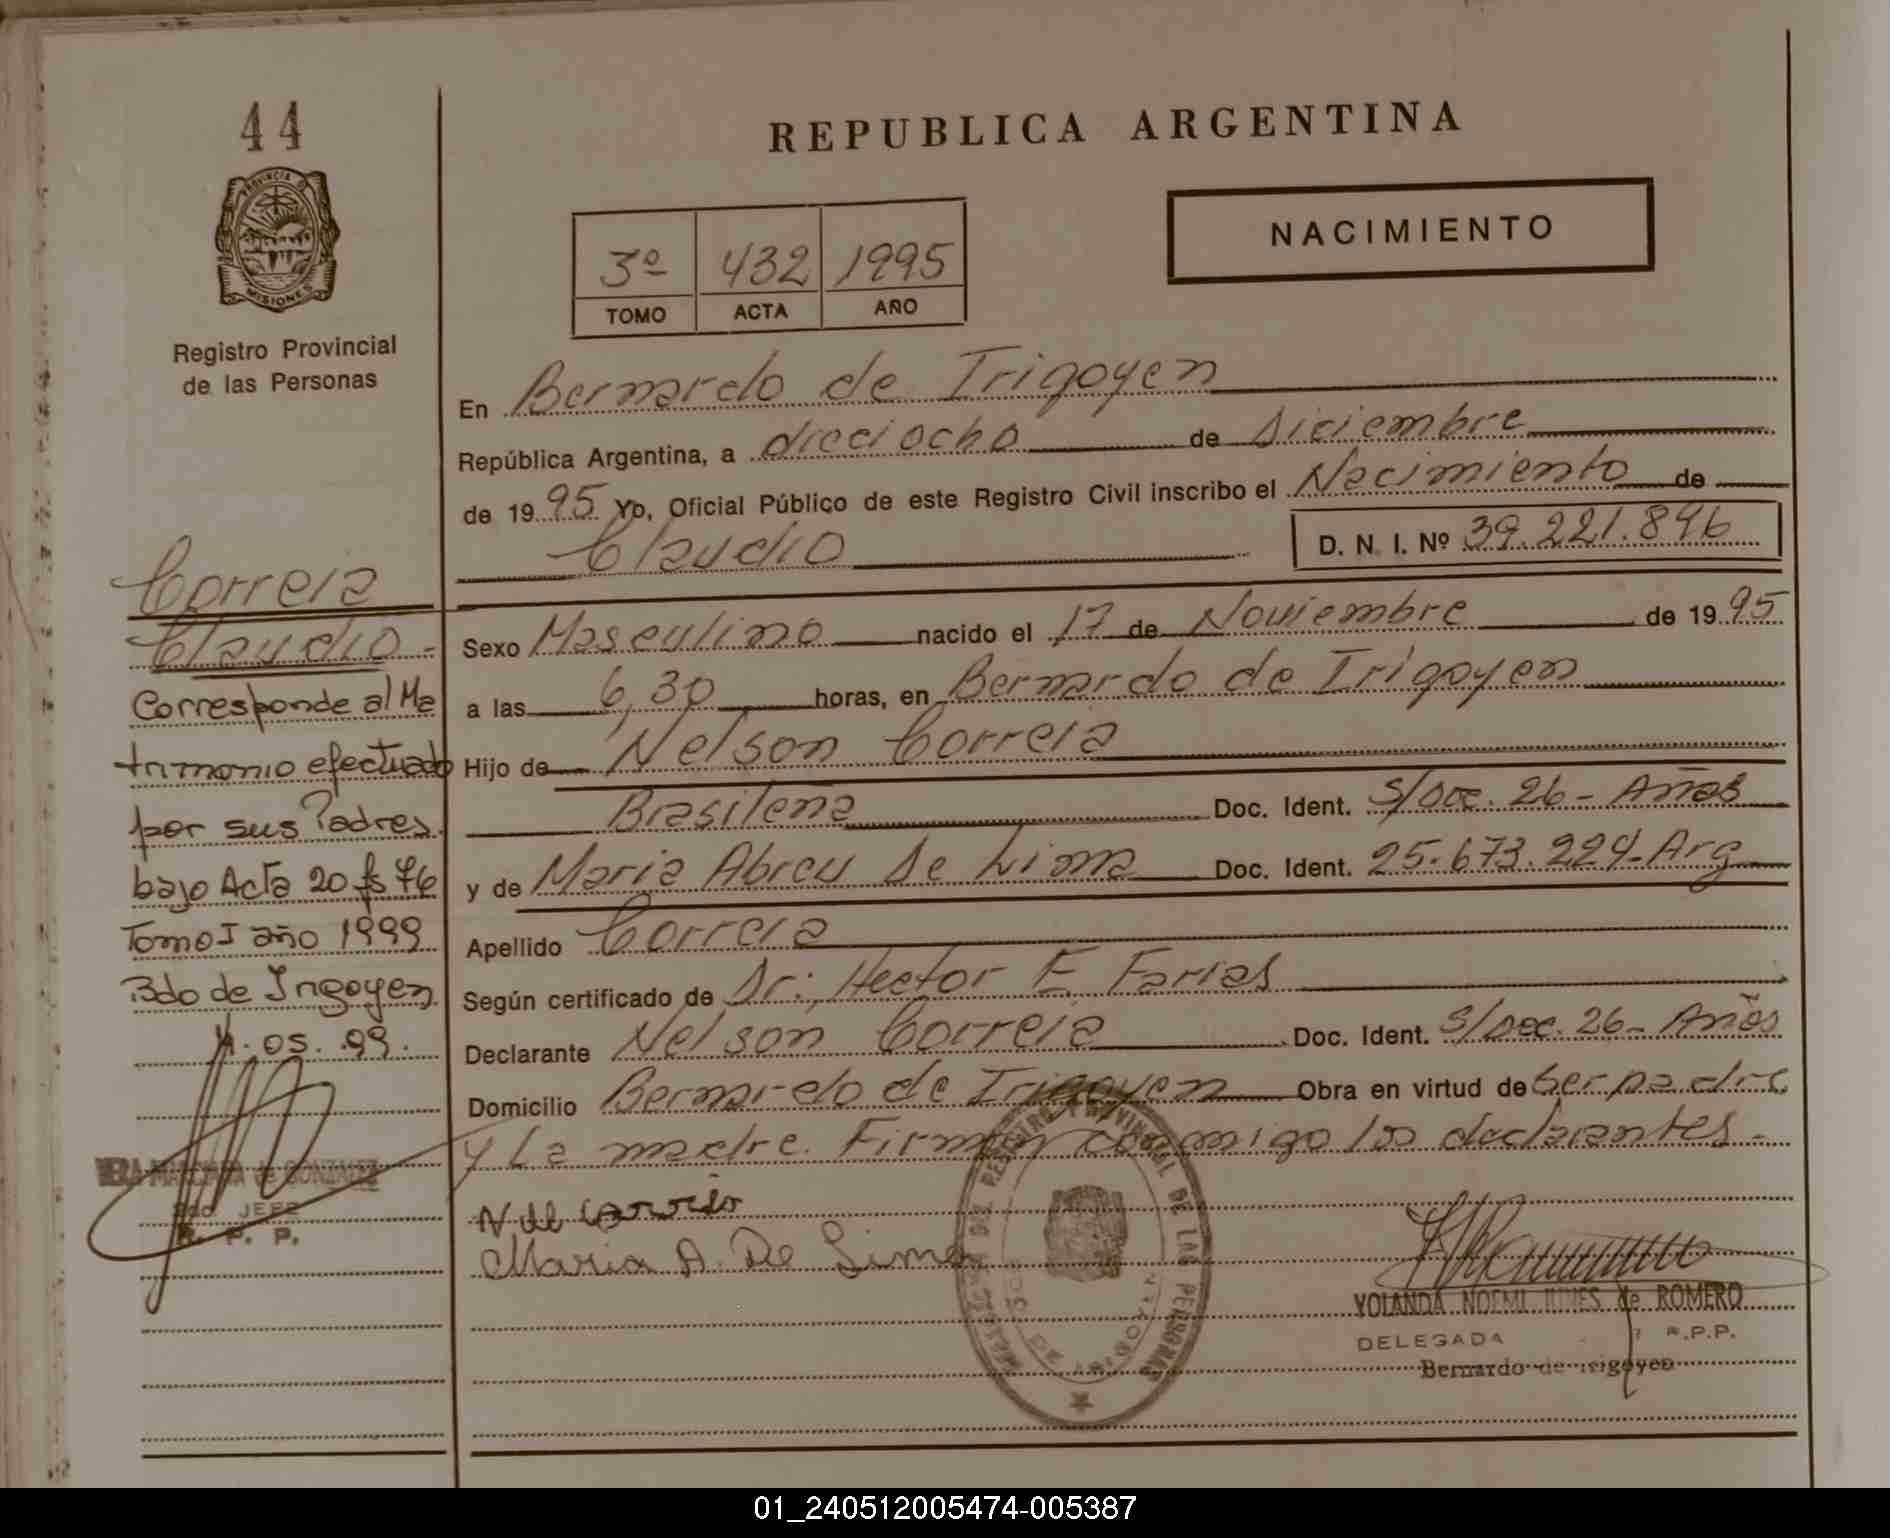 44
PROVINCIA DE
MISIONES
Registro Provincial
de las Personas
REPUBLICA ARGENTINA
NACIMIENTO
3º 432 1995
TOMO ACTA AÑO
En Bernardo de Irigoyen
República Argentina, a dieciocho de Diciembre
de 1995 Yo, Oficial Público de este Registro Civil inscribo el Nacimiento de
Claudio D. N. I. Nº 39.221.896
Correia
Claudio -
Corresponde al Ma
trimonio efectuado
por sus Padres
bajo Acta 20 fs 76
Tomo I año 1999
Bdo de Irigoyen
05. 99.
GONZALEZ
JEFE
R. P. P.
Sexo Masculino nacido el 17 de Noviembre de 1995
a las 6,30 horas, en Bernardo de Irigoyen
Hijo de Nelson Correia
Brasileña Doc. Ident. S/Doc. 26 - Años
y de Maria Abreu De Lima Doc. Ident. 25.673.224-Arg
Apellido Correia
Según certificado de Dr: Hector E Farias
Declarante Nelson Correia Doc. Ident. S/Doc. 26 - Años
Domicilio Bernardo de Irigoyen Obra en virtud de Ser padre
y La madre. Firman conmigo los declarantes -
Maria A. De Lima
REGISTRO PROVINCIAL DE LAS PERSONAS
YOLANDA NOEMI de ROMERO
DELEGADA R.P.P.
Bernardo de Irigoyen
01_240512005474-005387